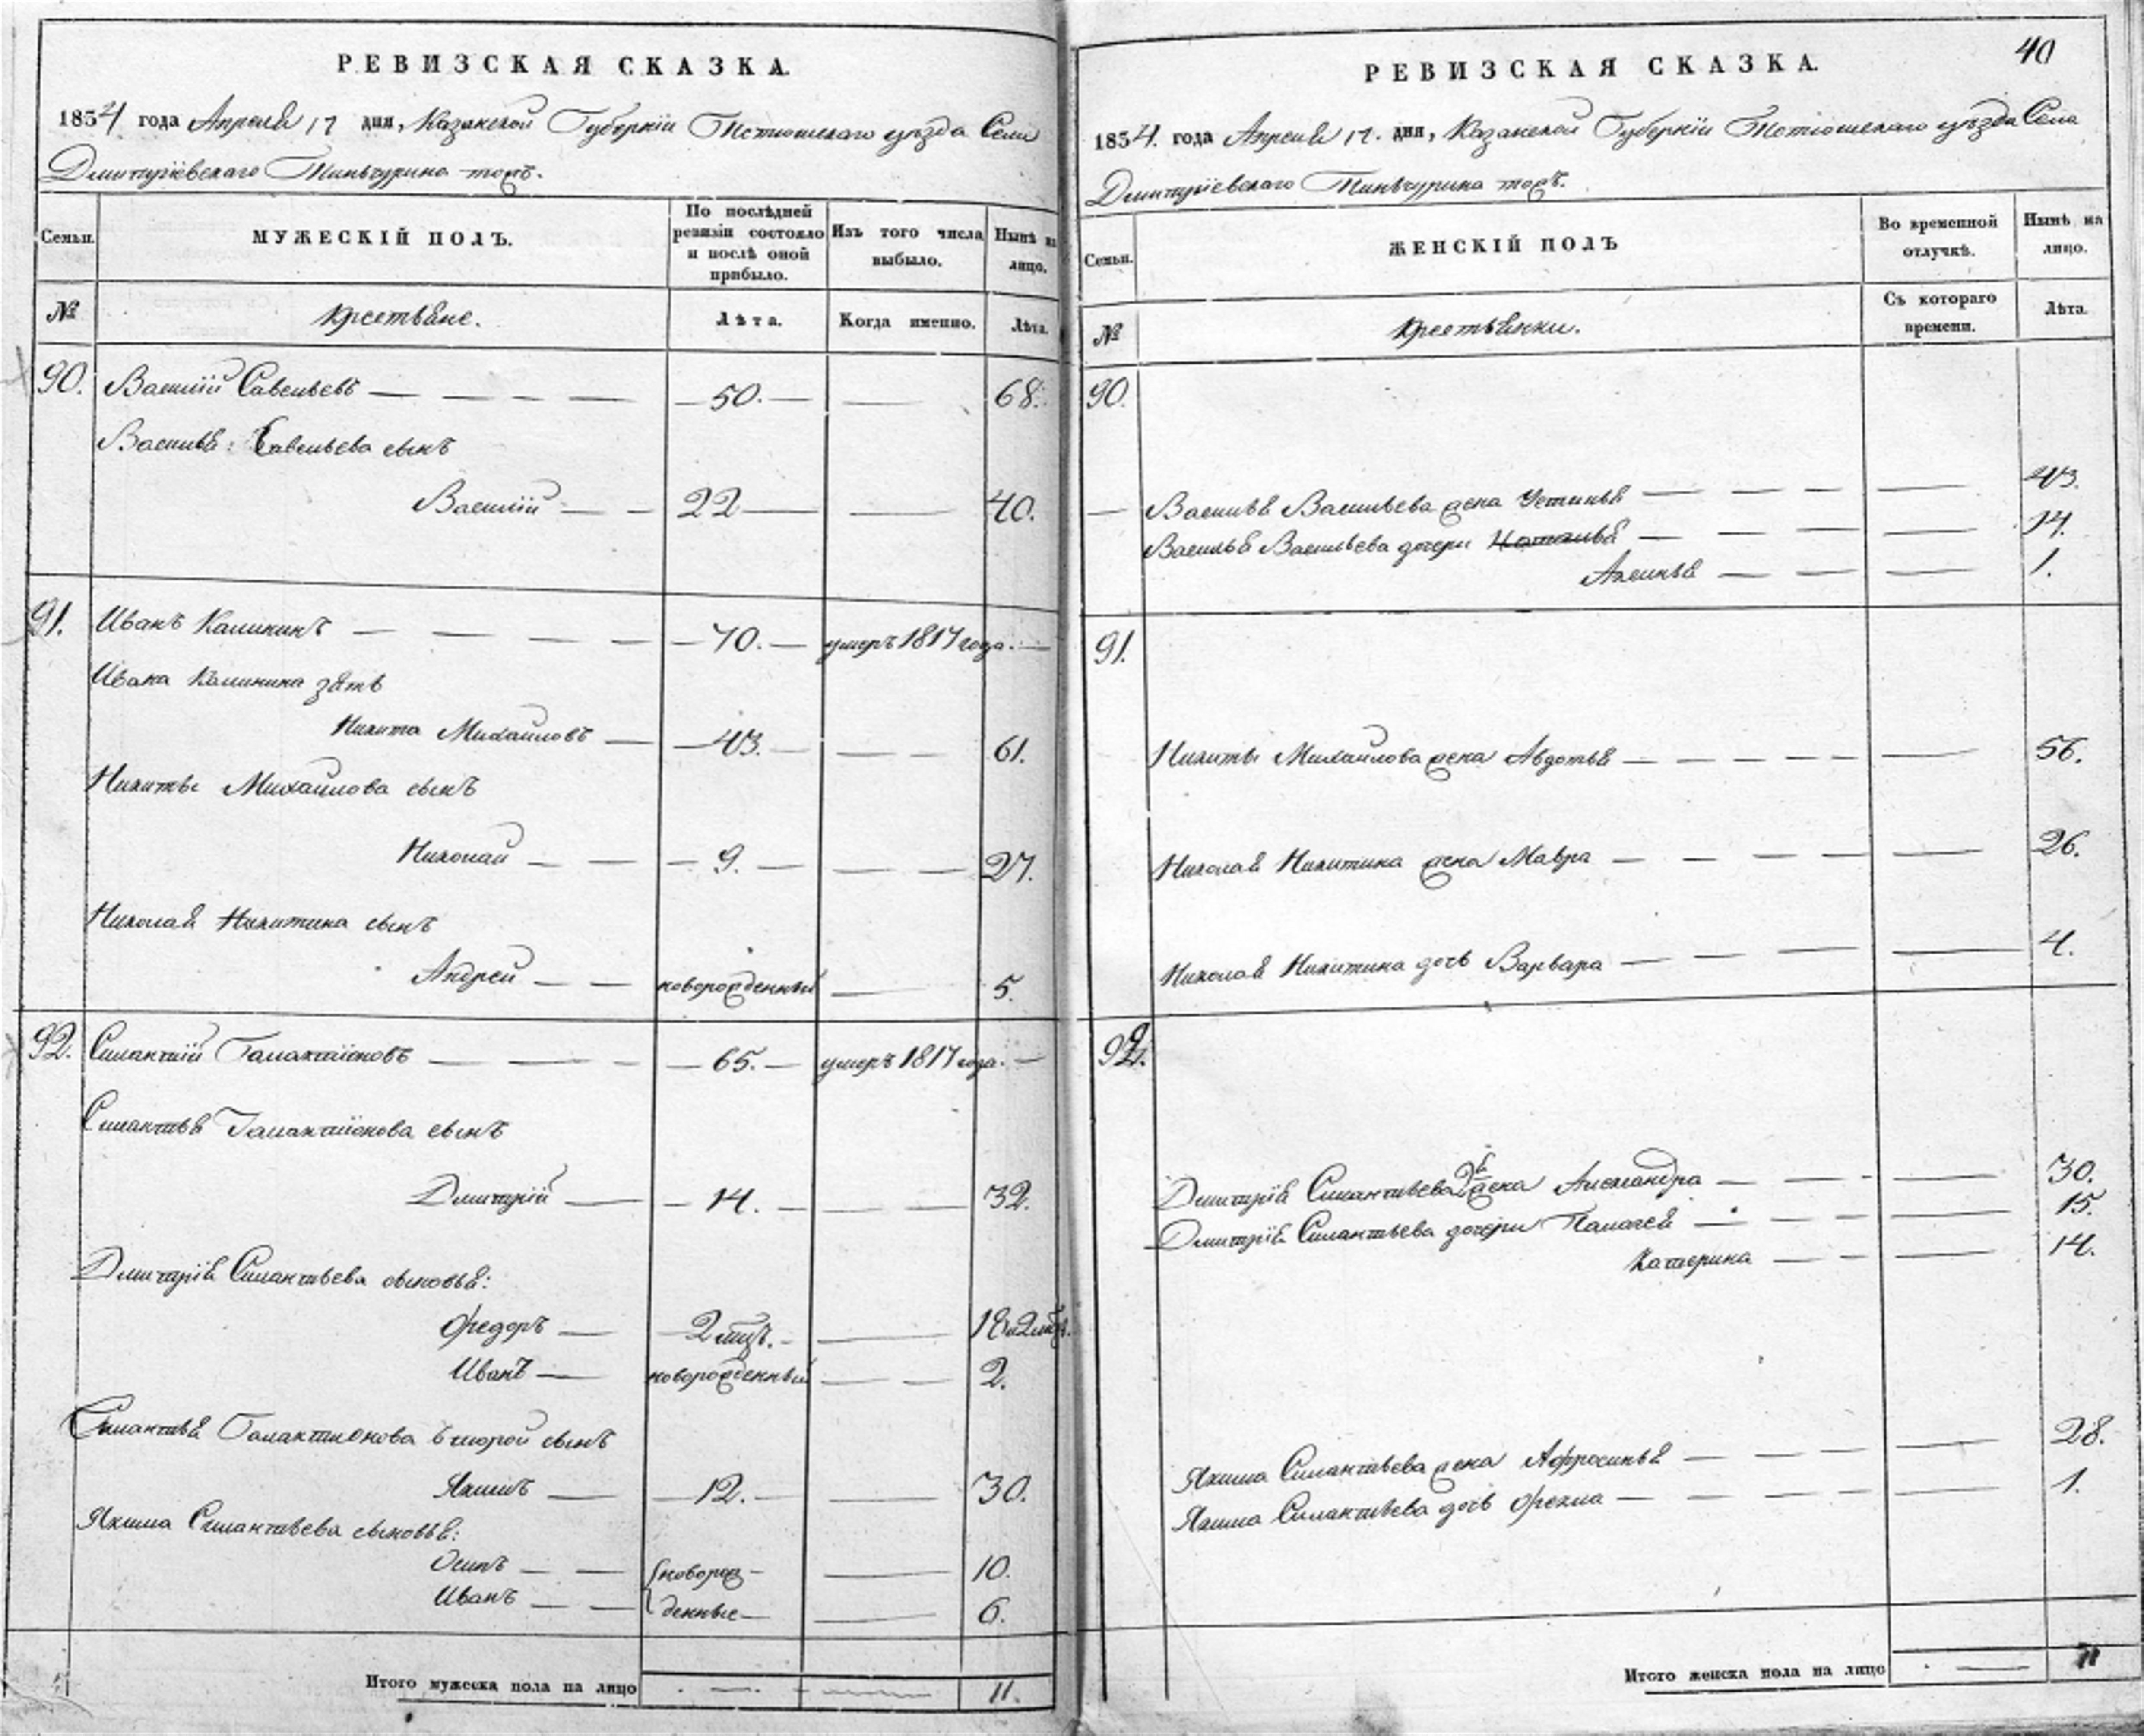 РЕВИЗСКАЯ СКАЗКА.
1834 года Апреля 17 дня, Казанской Губернiи Тетюшскаго уѣзда Села
Дмитрiевскаго Тинчурина тожъ.
Семьи.
МУЖЕСКІЙ ПОЛЪ.
По послѣдней ревизіи состояло и послѣ оной прибыло.
Изъ того числа выбыло.
Нынѣ на лицо.
№
Крестьяне.
Лѣта.
Когда именно.
Лѣта.
90. Василій Савельевъ — 50. — 68.
Василья Савельева сынъ
Василій — 22 — 40.
91. Иванъ Калининъ — 70. — умеръ 1817 года. —
Ивана Калинина зять
Никита Михайловъ — 43. — 61.
Никиты Михайлова сынъ
Николай — 9. — 27.
Николая Никитина сынъ
Андрей — новорожденный — 5.
92. Силантій Галактіоновъ — 65. — умеръ 1817 года. —
Силантья Галактіонова сынъ
Дмитрій — 14. — 32.
Дмитрія Силантьева сыновья:
Ѳедоръ — 2 мѣц. — 18 и 2 мѣц.
Иванъ — новорожденный — 2.
Силантья Галактионова второй сынъ
Якимъ — 12. — 30.
Якима Силантьева сыновья:
Осипъ — новорож- — 10.
Иванъ — денные — 6.
Итого мужеска пола на лицо — 11.
40
РЕВИЗСКАЯ СКАЗКА.
1834. года Апреля 17. дня, Казанской Губернiи Тетюшскаго уѣзда Села
Дмитрiевскаго Тинчурина тожъ.
Семьи.
ЖЕНСКІЙ ПОЛЪ
Во временной отлучкѣ.
Нынѣ на лицо.
№
Крестьянки.
Съ котораго времени.
Лѣта.
90.
Василья Васильева жена Устинья — 43.
Василья Васильева дочери Наталья — 14.
Аксинья — 1.
91.
Никиты Михайлова жена Авдотья — 56.
Николая Никитина жена Мавра — 26.
Николая Никитина дочь Варвара — 4.
92.
Дмитрія Силантьева 2я жена Александра — 30.
Дмитрія Силантьева дочери Палагея — 15.
Катерина — 14.
Якима Силантьева жена Афросинья — 28.
Якима Силантьева дочь Ѳекла — 1.
Итого женска пола на лицо — 11